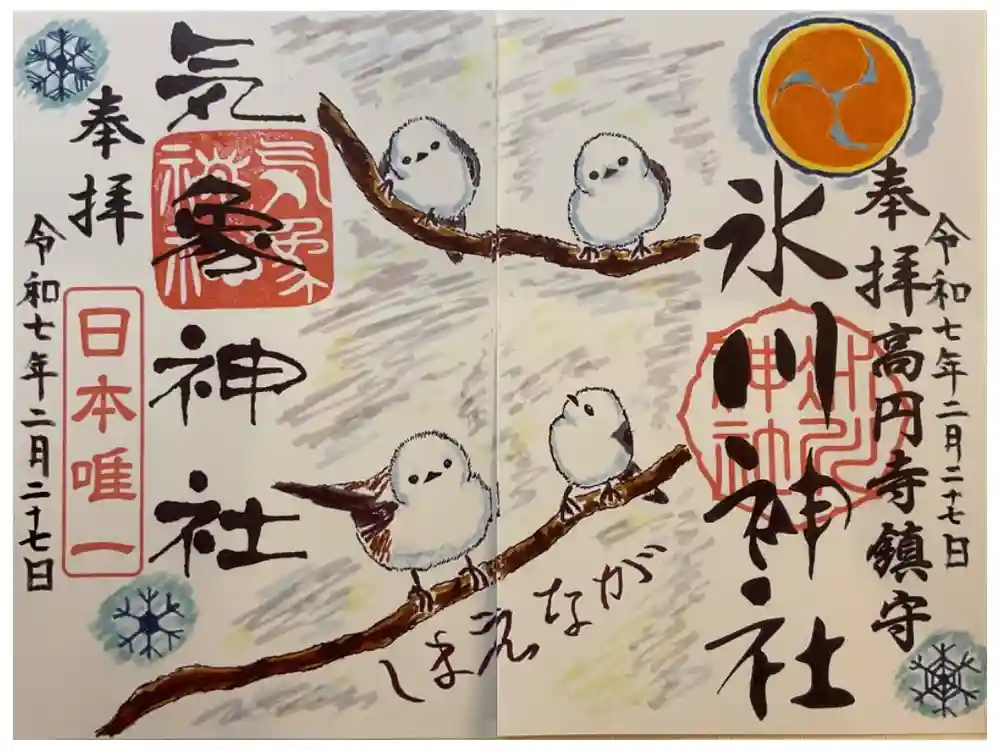 令和七年二月二十七日
奉拝高円寺鎮守
氷川神社
氷川神社
しまえなが
気象神社
気象神社
奉拝
日本唯一
令和七年二月二十七日